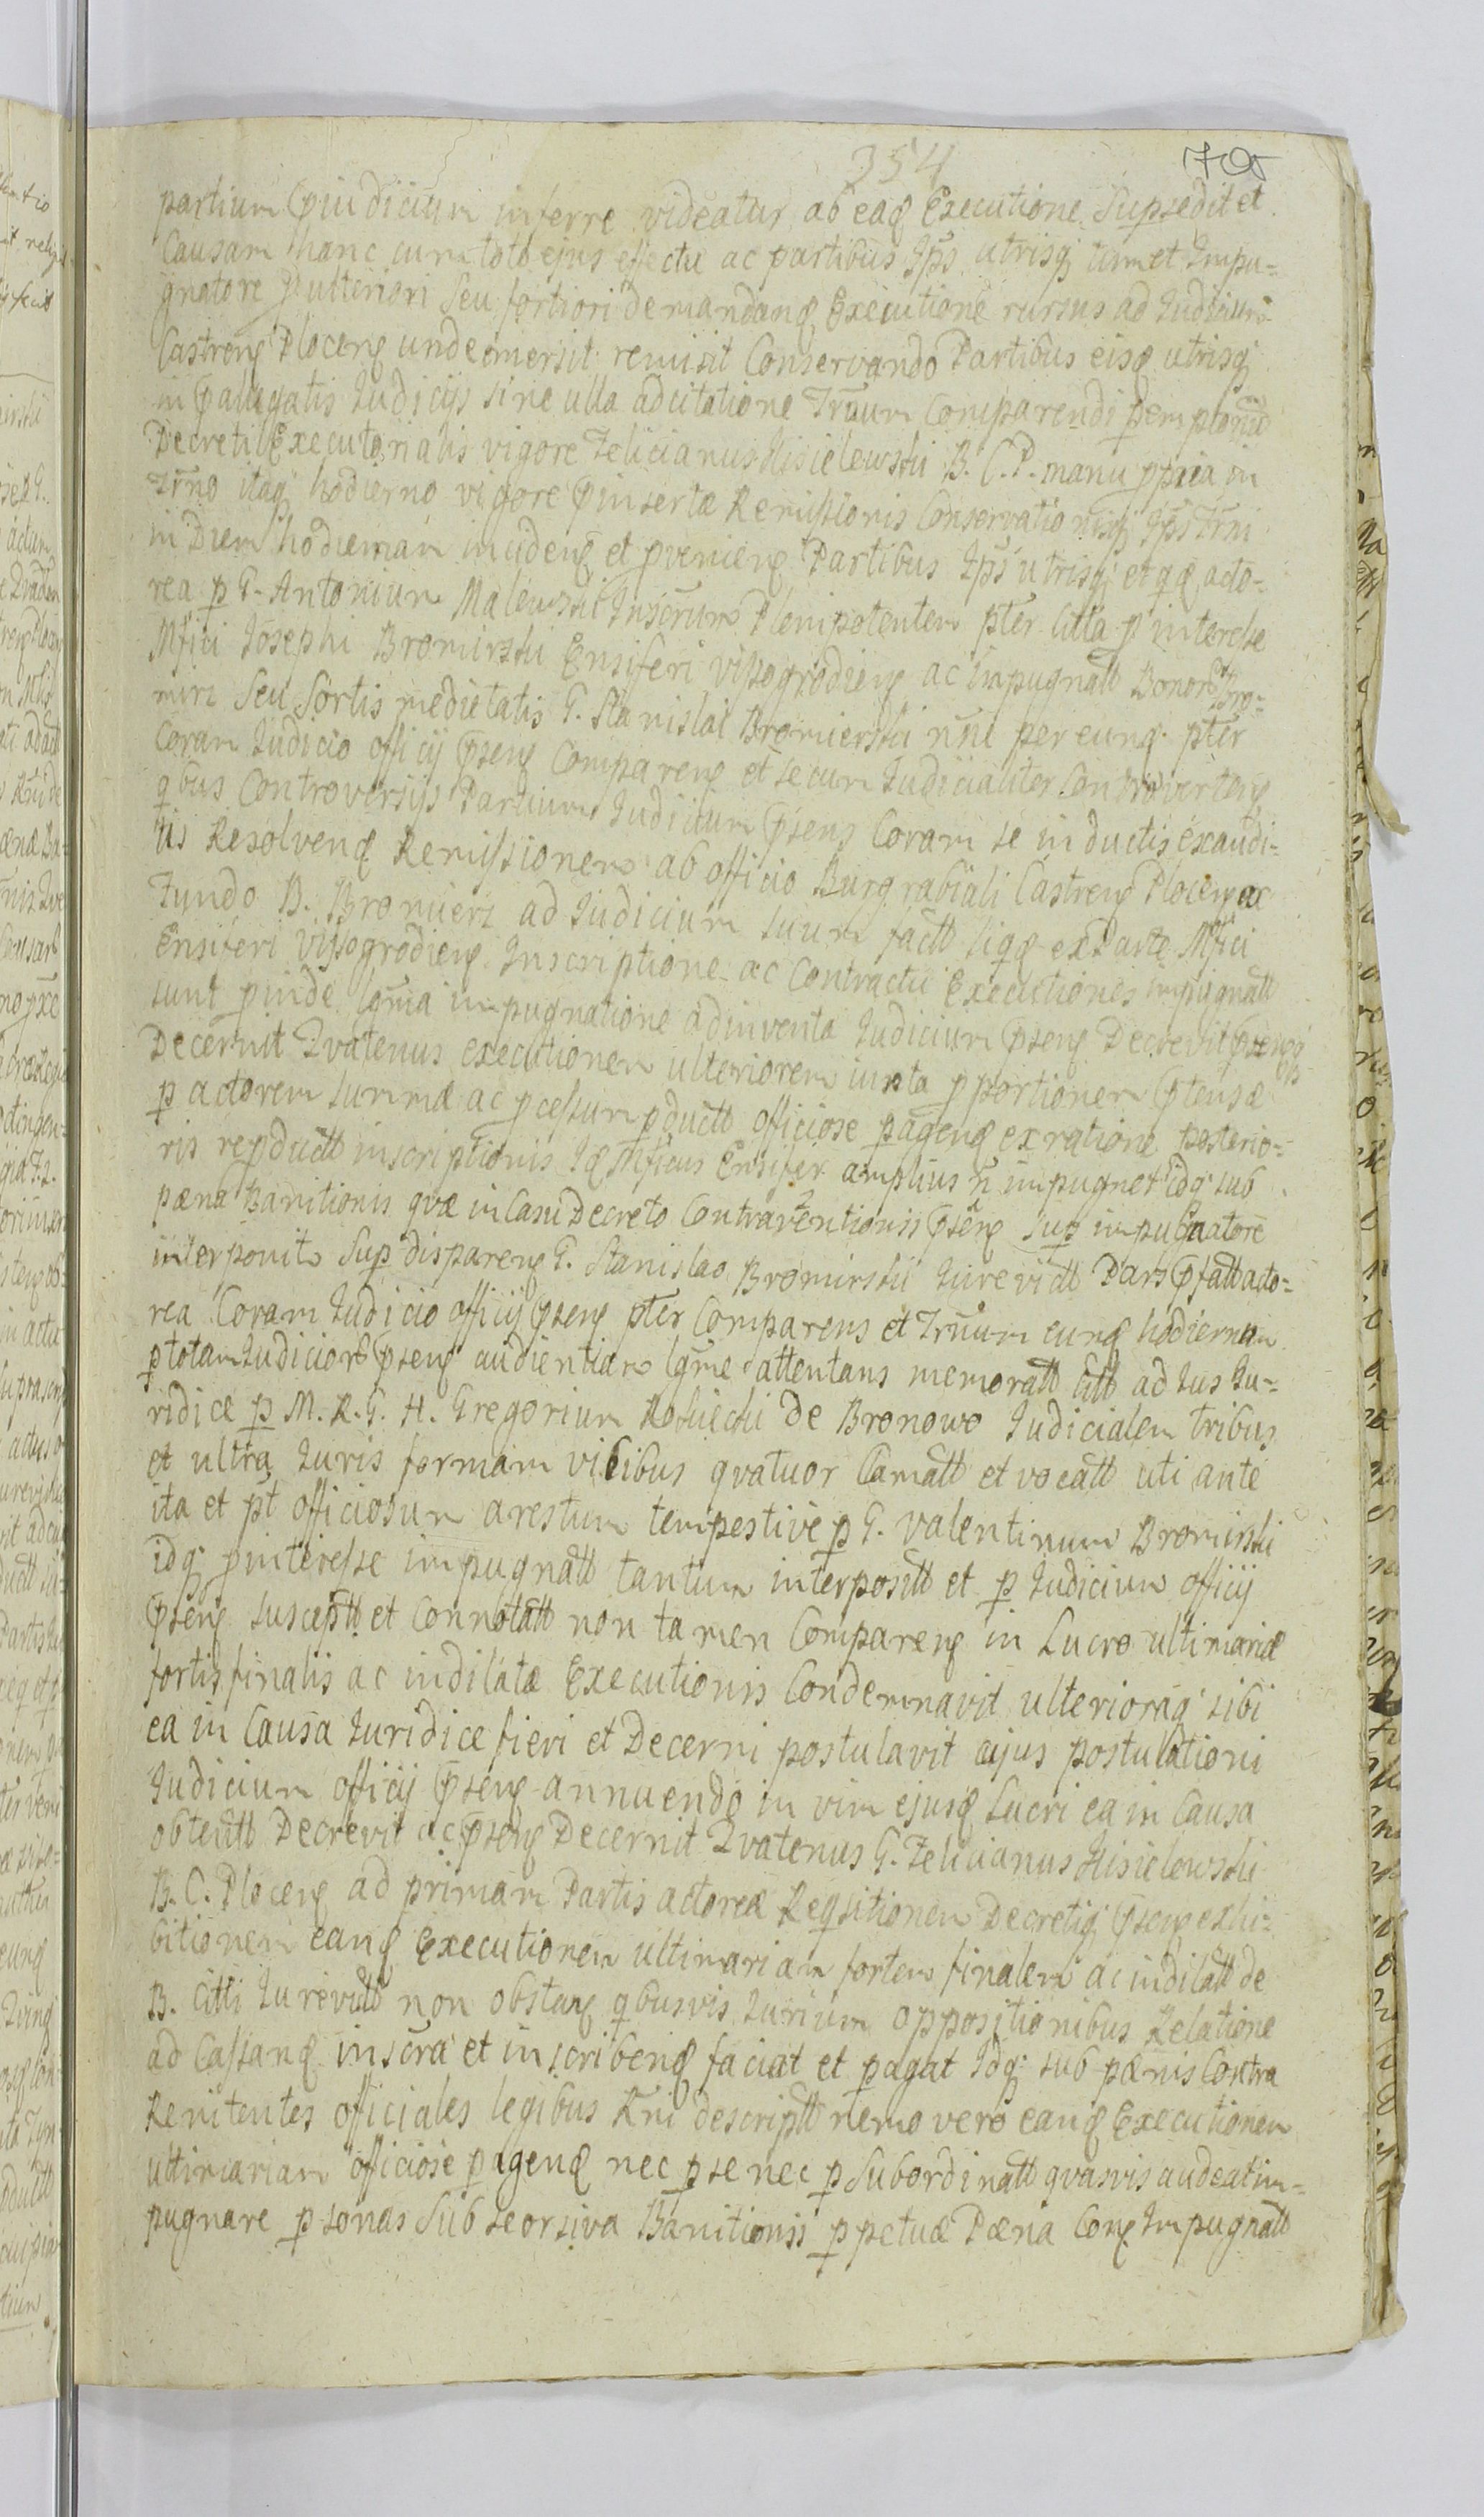 354 705
partium p̄iudicium inferre videatur ab eaq̃ Executione Supsedit et
Causam hanc cum toto ejus effectu ac partibus Ips̄ utrisq; tum et Impu=
gnatore p̄ ulteriori Seu fortiori demandanq̃ Executione rursus ad Iudicium
Castrenq̃ Plocenq̃ unde emersit remisit Conservando Partibus eisq̃ utrisq;
in p̄allegatis Iudicijs sine ulla adcitatione Tr̄num Comparendi Pemptoriũ
Decreti Executorialis vigore Felicianus Kisielewski B. C. P. manu ppria in
Tr̄no itaq; hodierno vigore p̄insertæ Remissionis Conservationisq; Ips̄ Tr̄ni
in Diem hodiernam incidenq̃ et pvenienq̃ Partibus Ips̄ utrisq; et qq̃ acto=
rea p G. Antonium Malewski Inscrum Plenipotentem pter litta p interesse
Mfici Iosephi Bromirski Ensiferi Visogrodienq̃ ac Impugnatt Bonorũ Bro=
miri Seu Sortis medietatis G. Stanislai Bromierski n̄ni per eunq̃ pter
Coram Iudicio officij p̄senq̃ Comparenq̃ et secum Iudicialiter Controvertenq̃
qbus Controversijs Partium Iudicium p̄sens Coram se inductis exaudi=
tis Resolvenq̃ Remissionem ab officio Burgrabiali Castrenq̃ Plocenq̃ ex
Fundo B. Bromieri ad Iudicium suum factt liqq̃ ex Parte Mfici
Ensiferi Visogrodienq̃ Inscriptione ac Contractu Executiones impugnatt
sunt pinde lgma impugnatione adinventa Iudicium p̄senq̃ Decrevit p̄senq̃q;
Decernit Qvatenus executionem ulteriorem iuxta pportionem p̄tensæ
p actorem summæ ac pcessum pductt officiose pagenq̃ ex ratione posterio=
ris repductt inscriptionis Iq̃ Mficus Ensifer amplius n̄ impugnet idq; sub
pæna Banitionis qvæ in Casu Decreto Contraventionis p̄senq̃ sup impugnatore
interponit Sup disparenq̃ G. Stanislao Bromirski Iurevictt Pars p̄fatt acto=
rea Coram Iudicio officij p̄senq̃ pter Comparens et Tr̄num eunq̃ hodiernum
p totam Iudiciorũ p̄senq̃ audientiam lgme attentans memoratt Citt ad Ius Iu=
ridice p M. R. G. H. Gregorium Rosiecki de Bronowo Iudicialem tribus
et ultra Iuris formam vicibus qvatuor Clamatt et vocatt uti ante
ita et pt officiosum arestum tempestive p G. Valentinum Bromirski
idq; p interesse impugnatt tantum interpositt et p Iudicium officij
p̄senq̃ susceptt et Connotatt non tamen Comparenq̃ in Lucro ultimariæ
fortis finalis ac indilatæ Executionis Condemnavit ulterioraq; sibi
ea in Causa Iuridice fieri et Decerni postulavit cujus postulationi
Iudicium officij p̄senq̃ annuendo in vim ejusq̃ Lucri ea in Causa
obtentt Decrevit ac p̄senq̃ Decernit Qvatenus G. Felicianus Kisielewski
B. C. Plocenq̃ ad primam Partis actoreæ Reqsitionem Decretiq; p̄senq̃ exhi=
bitionem eanq̃ Executionem ultimariam fortem finalem ac indilatt de
B. Citti Iurevictt non obstanq̃ qbusvis Iurium oppositionibus Relatione
ad Cassanq̃ inscra et inscribenq̃ faciat et pagat Idq; sub pænis Contra
Renitentes officiales legibus Rni descriptt nemo vero eanq̃ Executionem
ultimariam officiose pagenq̃ nec p se nec p Subordinatt qvasvis audeat im=
pugnare psonas Sub seorsiva Banitionis ppetuæ Pæna Conq̃ Impugnatt